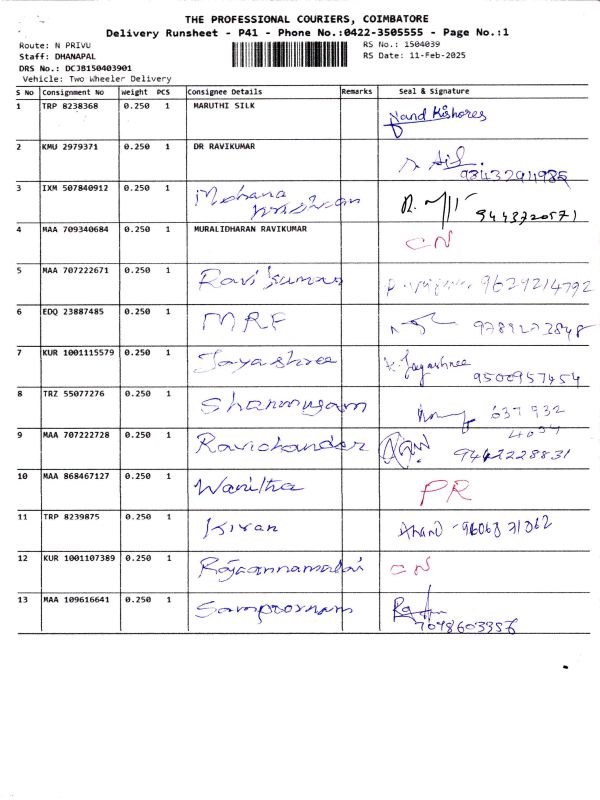 THE PROFESSIONAL COURIERS, COIMBATORE
Delivery Runsheet - P41 - Phone No.:0422-3505555 - Page No.:1
Route: N PRIVU
RS No.: 1504039
Staff: DHANAPAL
RS Date: 11-Feb-2025
DRS No.: DCJB150403901
Vehicle: Two Wheeler Delivery
S No Consignment No Weight PCS Consignee Details Remarks Seal & Signature
1 TRP 8238368 0.250 1 MARUTHI SILK Nand Kishores
2 KMU 2979371 0.250 1 DR RAVIKUMAR
3 IXM 507840912 0.250 1 Mohana
9443720571
4 MAA 709340684 0.250 1 MURALIDHARAN RAVIKUMAR CN
5 MAA 707222671 0.250 1 Ravi kumar 9629214792
6 EDQ 23887485 0.250 1 MRF
7 KUR 1001115579 0.250 1 Jayashree K. Jayashree
9500957454
8 TRZ 55077276 0.250 1 Shanmugam 637 932
4034
9 MAA 707222728 0.250 1 Ravichander 9442228831
10 MAA 868467127 0.250 1 Wanitha PR
11 TRP 8239875 0.250 1 Kiran Anand
12 KUR 1001107389 0.250 1 Rajaannamalai CN
13 MAA 109616641 0.250 1 Sampoornam